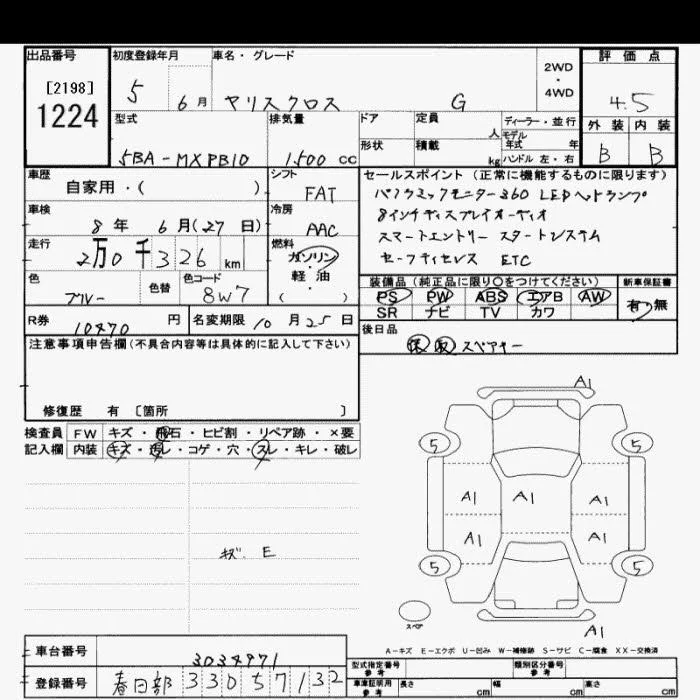 出品番号
[2198]
1224
初度登録年月
5 6月
車名・グレード
ヤリスクロス G
2WD
・
4WD
評価点
4.5
外装 内装
B B
型式
5BA-MXPB10
排気量
1500 cc
ドア
形状
定員
人
積載
kg
ディーラー・並行
モデル
年式 年
ハンドル 左・右
車歴
自家用・( )
シフト
FAT
車検
8年 6月(27日)
冷房
AAC
走行
2万0千326 km
燃料
ガソリン
軽・油
( )
色
ブルー
色替
色コード
8W7
セールスポイント (正常に機能するものに限ります)
パノラミックモニター360 LEDヘッドランプ
8インチディスプレイオーディオ
スマートエントリー スタートシステム
セーフティセンス ETC
装備品 (純正品に限り○をつけてください)
PS PW ABS エアB AW
SR ナビ TV カワ
新車保証書
有・無
R券
10470 円
名変期限 10月25日
後日品
保 取 スペアキー
注意事項申告欄 (不具合内容等は具体的に記入して下さい)
修復歴 有 〔箇所 〕
検査員 FW キズ・飛石・ヒビ割・リペア跡・×要
記入欄 内装 キズ・汚レ・コゲ・穴・スレ・キレ・破レ
キズ E
A1
5 5
A1 A1 A1
A1 A1
5 5
スペア
A1
A-キズ E-エクボ U-凹み W-補修跡 S-サビ C-腐食 XX-交換済
車台番号
3034971
登録番号 春日部 330 57132
型式指定番号
参考
類別区分番号
参考
車庫証明用
参考
長さ cm 幅 cm 高さ cm